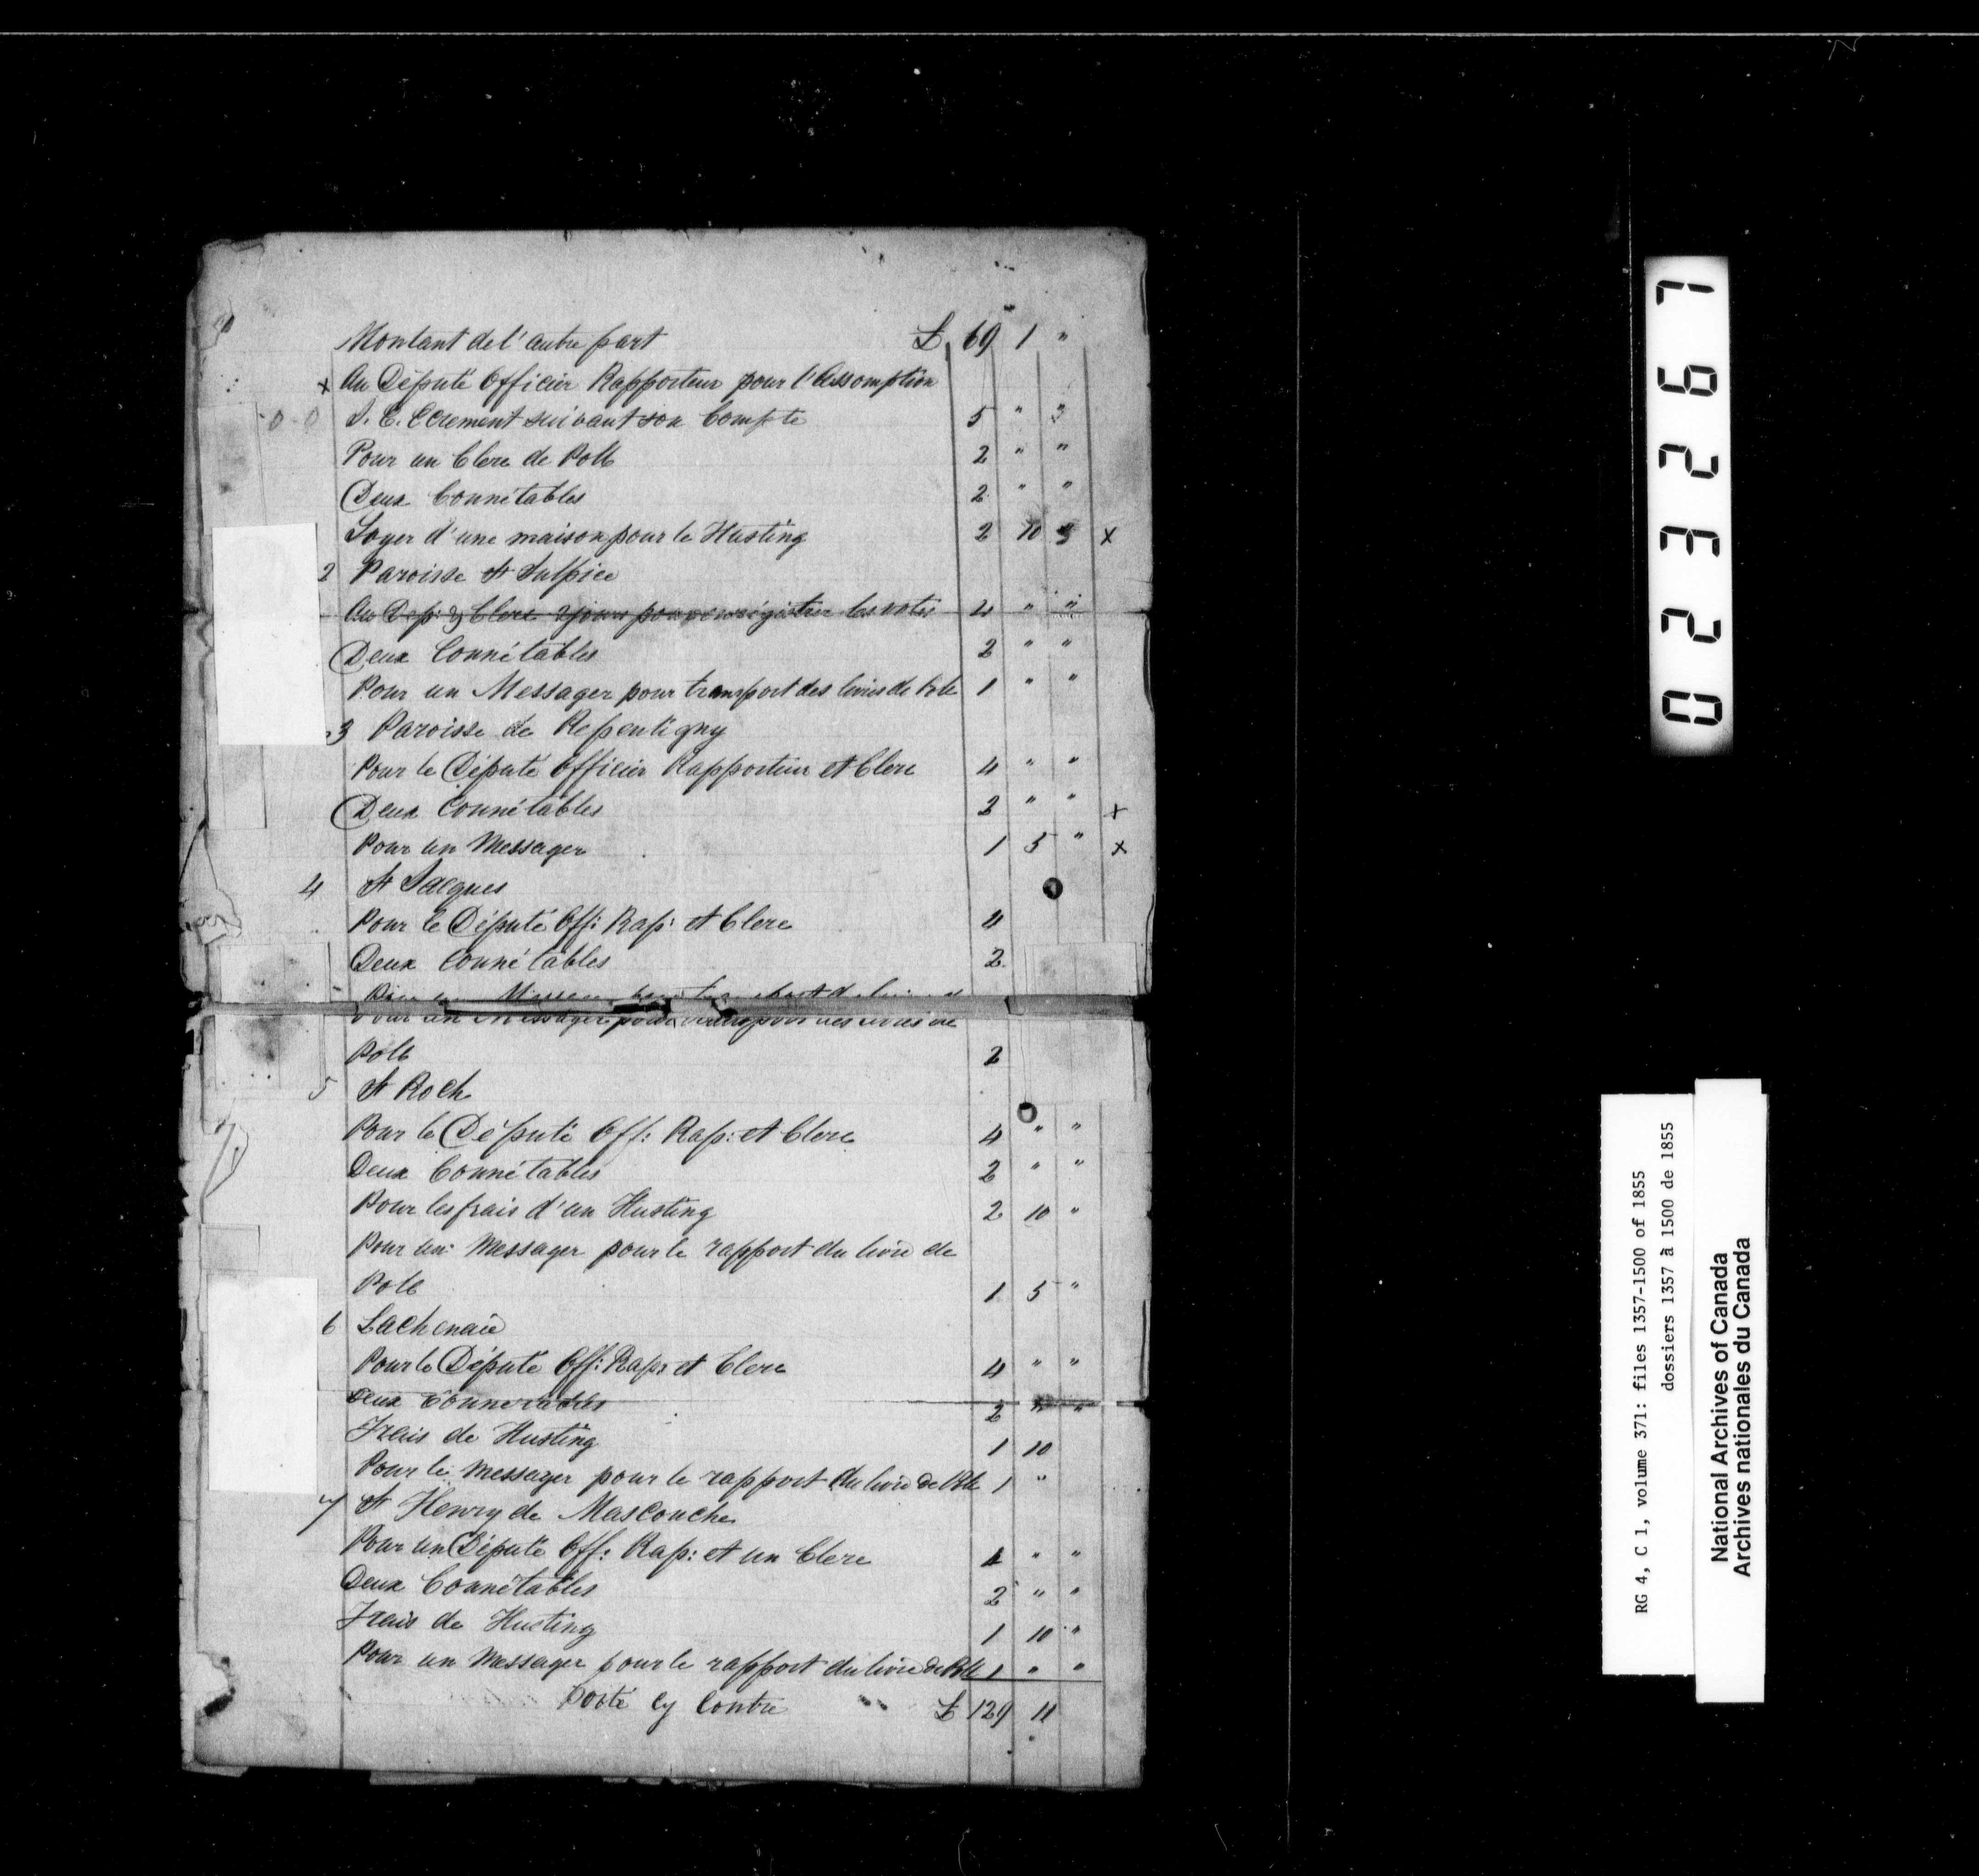 Montant de l'autre part £ 69 1 "
x Au Député Officier Rapporteur pour l'Assomption
J. E. Ecrement suivant son Compte 5 " "
Pour un Clerc de Poll 2 " "
Deux Connétables 2 " "
Loyer d'une maison pour le Husting 2 10 x
2 Paroisse St Sulpice
Au Dep: & Clerc 2 jours pour enrégistrer les votes 4 " "
Deux Connétables 2 " "
Pour un Messager pour transport des livres de Pole 1 " "
3 Paroisse de Repentigny
Pour le Député Officier Rapporteur et Clerc 4 " "
Deux Connétables 2 " " x
Pour un Messager 1 5 " x
4 St Jacques
Pour le Député Off: Rap: et Clerc 4
Deux Connétables 2
Pour un Messager pour transport des livres de
Poll 2
5 St Roch
Pour le Député Off: Rap: et Clerc 4 " "
Deux Connétables 2 " "
Pour les frais d'un Husting 2 10 "
Pour un Messager pour le rapport du livre de
Poll 1 5 "
6 Lachenaie
Pour le Député Off: Rap: et Clerc 4 " "
Deux Connetables 2 " "
Frais de Husting 1 10
Pour le Messager pour le rapport du livre de Pole 1 "
7 St Henry de Mascouche
Pour un Député Off: Rap: et un Clerc 4 " "
Deux Connétables 2 " "
Frais de Husting 1 10 "
Pour un Messager pour le rapport du livre de Poll 1 " "
Porté cy Contre £ 129 11
023267
RG 4, C 1, volume 371: files 1357-1500 of 1855
dossiers 1357 à 1500 de 1855
National Archives of Canada
Archives nationales du Canada